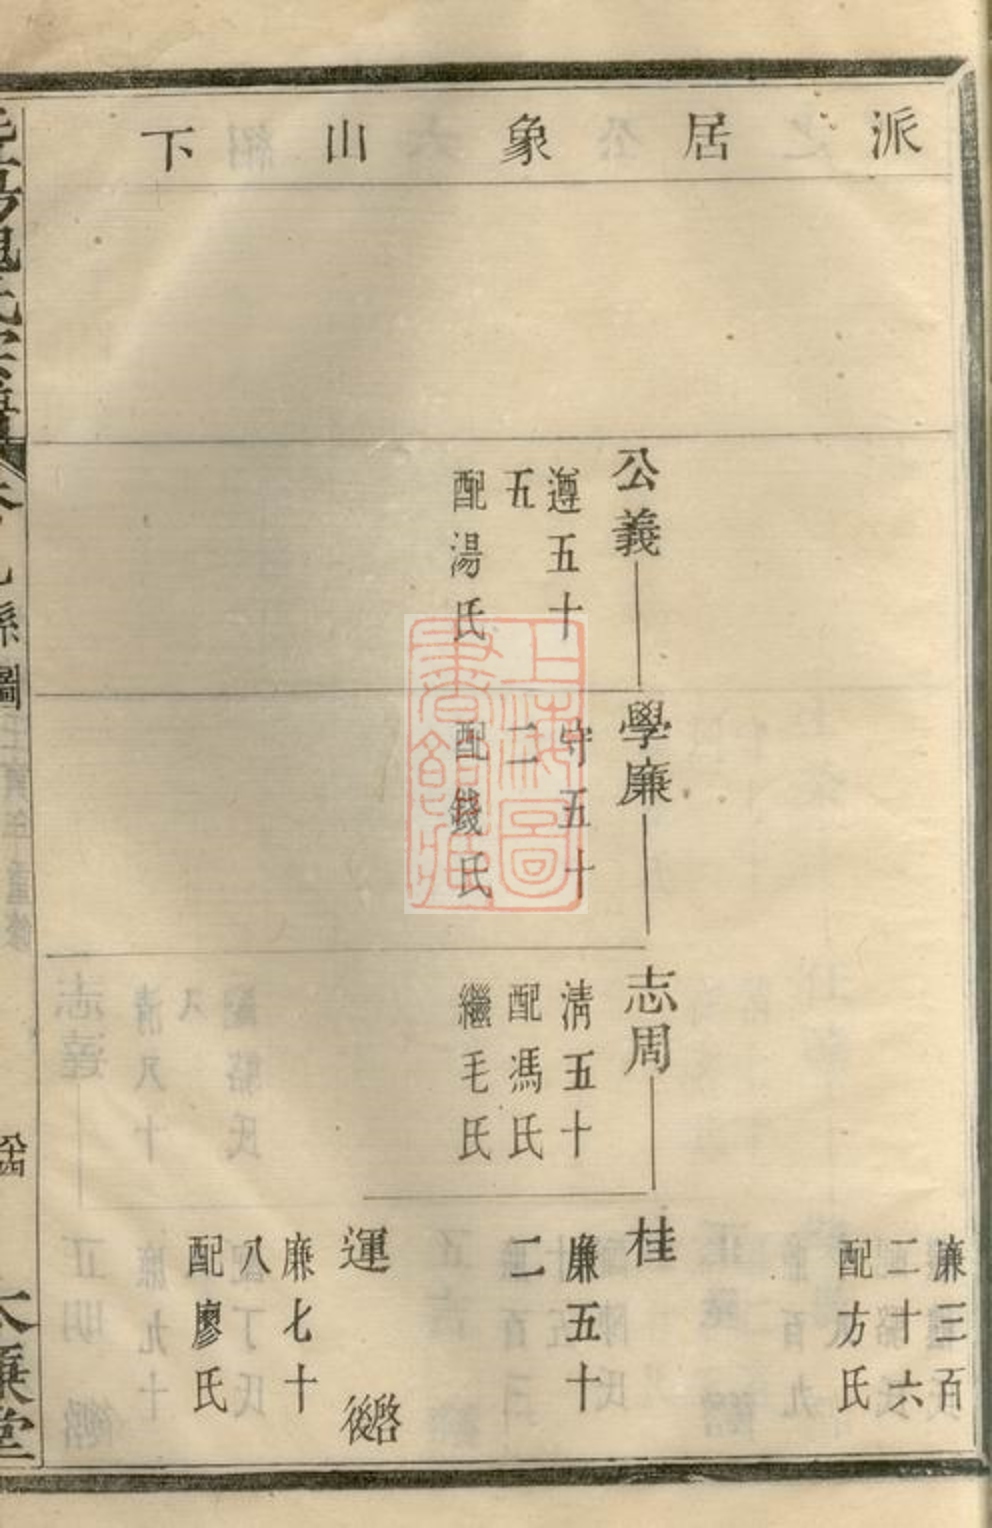 派居象山下
公義
遵五十
五
配湯氏
學廉
守五十
二
配錢氏
志周
清五十
配馮氏
繼毛氏
廉三百
二十六
配方氏
桂
廉五十
二
運
啓後
廉七十
八
配廖氏
上海圖書館藏
系圖